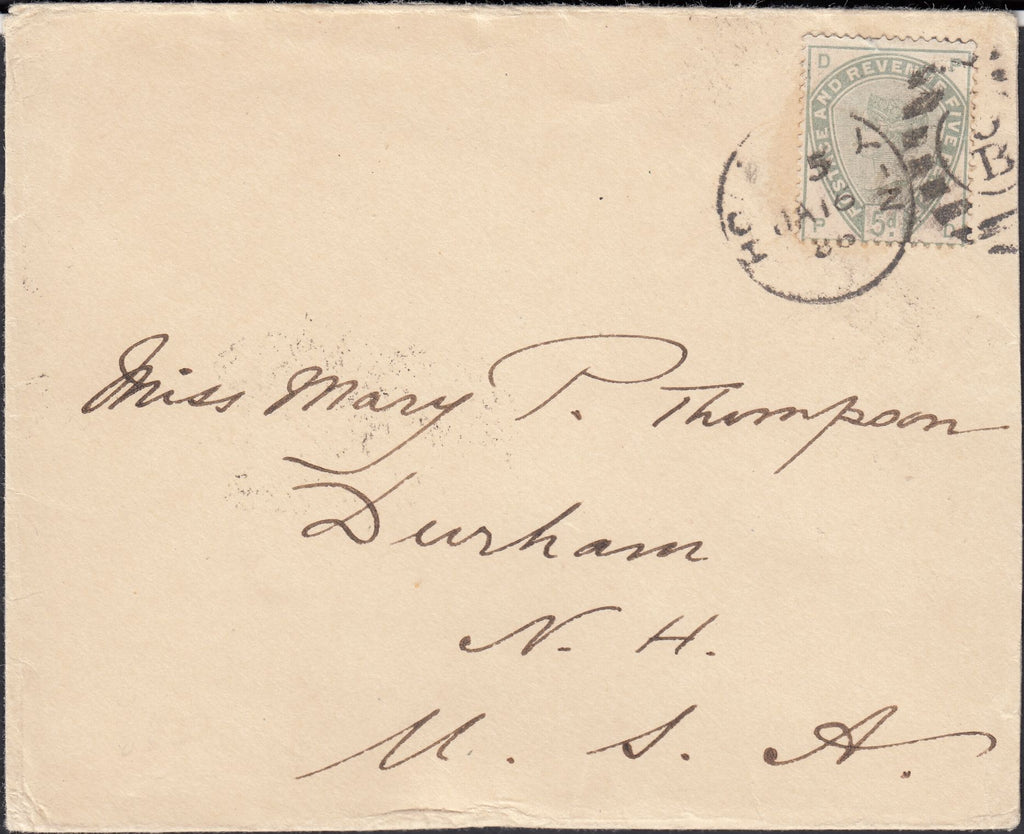 D
POSTAGE AND REVENUE FIVE
5d
B
5
JA 16
86
Miss Mary P. Thompson
Durham
N. H.
U. S. A.